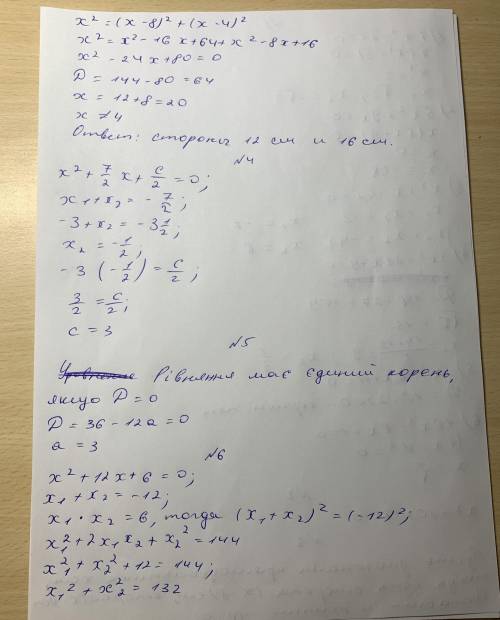 x² = (x - 8)² + (x - 4)²
x² = x² - 16x + 64 + x² - 8x + 16
x² - 24x + 80 = 0
D = 144 - 80 = 64
x = 12 + 8 = 20
x ≠ 4
Ответ: стороны 12 см и 16 см.
№4
x² + 7/2 x + c/2 = 0;
x₁ + x₂ = - 7/2;
-3 + x₂ = -3 1/2;
x₂ = - 1/2;
-3 (- 1/2) = c/2;
3/2 = c/2;
c = 3
№5
Рівняння має єдиний корень,
якщо D = 0
D = 36 - 12a = 0
a = 3
№6
x² + 12x + 6 = 0;
x₁ + x₂ = -12;
x₁ · x₂ = 6, тогда (x₁ + x₂)² = (-12)²;
x₁² + 2x₁x₂ + x₂² = 144
x₁² + x₂² + 12 = 144;
x₁² + x₂² = 132